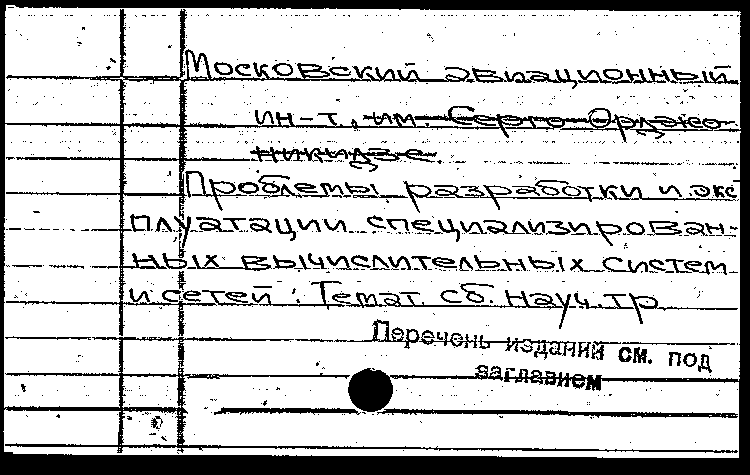 Московский авиационный
ин-т. им. Серго Орджо-
никидзе.
Проблемы разработки и экс
плуатации специализирован-
ных вычислительных систем
и сетей : Темат. сб. науч. тр.
Перечень изданий см. под
заглавием